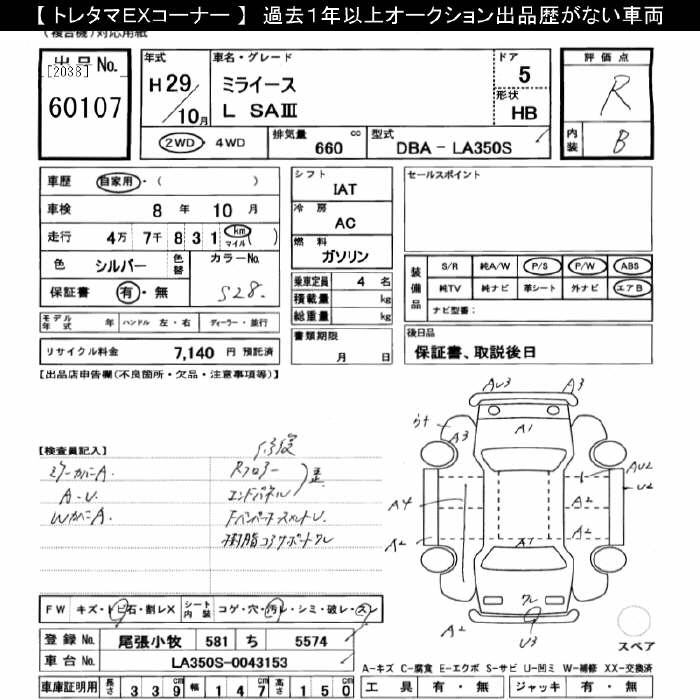 【 トレタマEXコーナー 】 過去１年以上オークション出品歴がない車両
(複合機)対応用紙
出品No.
[2038]
60107
年式
H29/10月
車名・グレード
ミライース
L SAⅢ
ドア
5
形状
HB
評価点
R
内装
B
2WD・4WD
排気量 660 cc
型式 DBA - LA350S
車歴 自家用・( )
車検 8 年 10 月
走行 4万 7千 8 3 1 km マイル ( )
色 シルバー 色替 カラーNo.
保証書 有・無 S28.
モデル年式 年 ハンドル 左・右 ディーラー・並行
リサイクル料金 7,140 円 預託済
シフト
IAT
冷房
AC
燃料
ガソリン
乗車定員 4 名
積載量 kg
総重量 kg
書類期限
月 日
セールスポイント
装備品
S/R 純A/W P/S P/W ABS
純TV 純ナビ 革シート 外ナビ エアB
ナビ型番:
後日品
保証書、取説後日
【出品店申告欄(不良箇所・欠品・注意事項等)】
【検査員記入】
ミラーカバーA.
A-U.
WカバーA.
修復
Rフロアー
エンドパネル
歪
樹脂コアサポートワレ
AU3
A3
A1
A3
AU2
U2
A4
A2
A2
A2
A1
ワレ
A2
U3
スペア
FW キズ・トビ石・割レX シート内装 コゲ・穴・汚レ・シミ・破レ・スレ
登録No. 尾張小牧 581 ち 5574
車台No. LA350S-0043153
車庫証明用 長さ 339 幅 147 高さ 150
A-キズ C-腐食 E-エクボ S-サビ U-凹ミ W-補修 XX-交換済
工具 有・無 ジャッキ 有・無